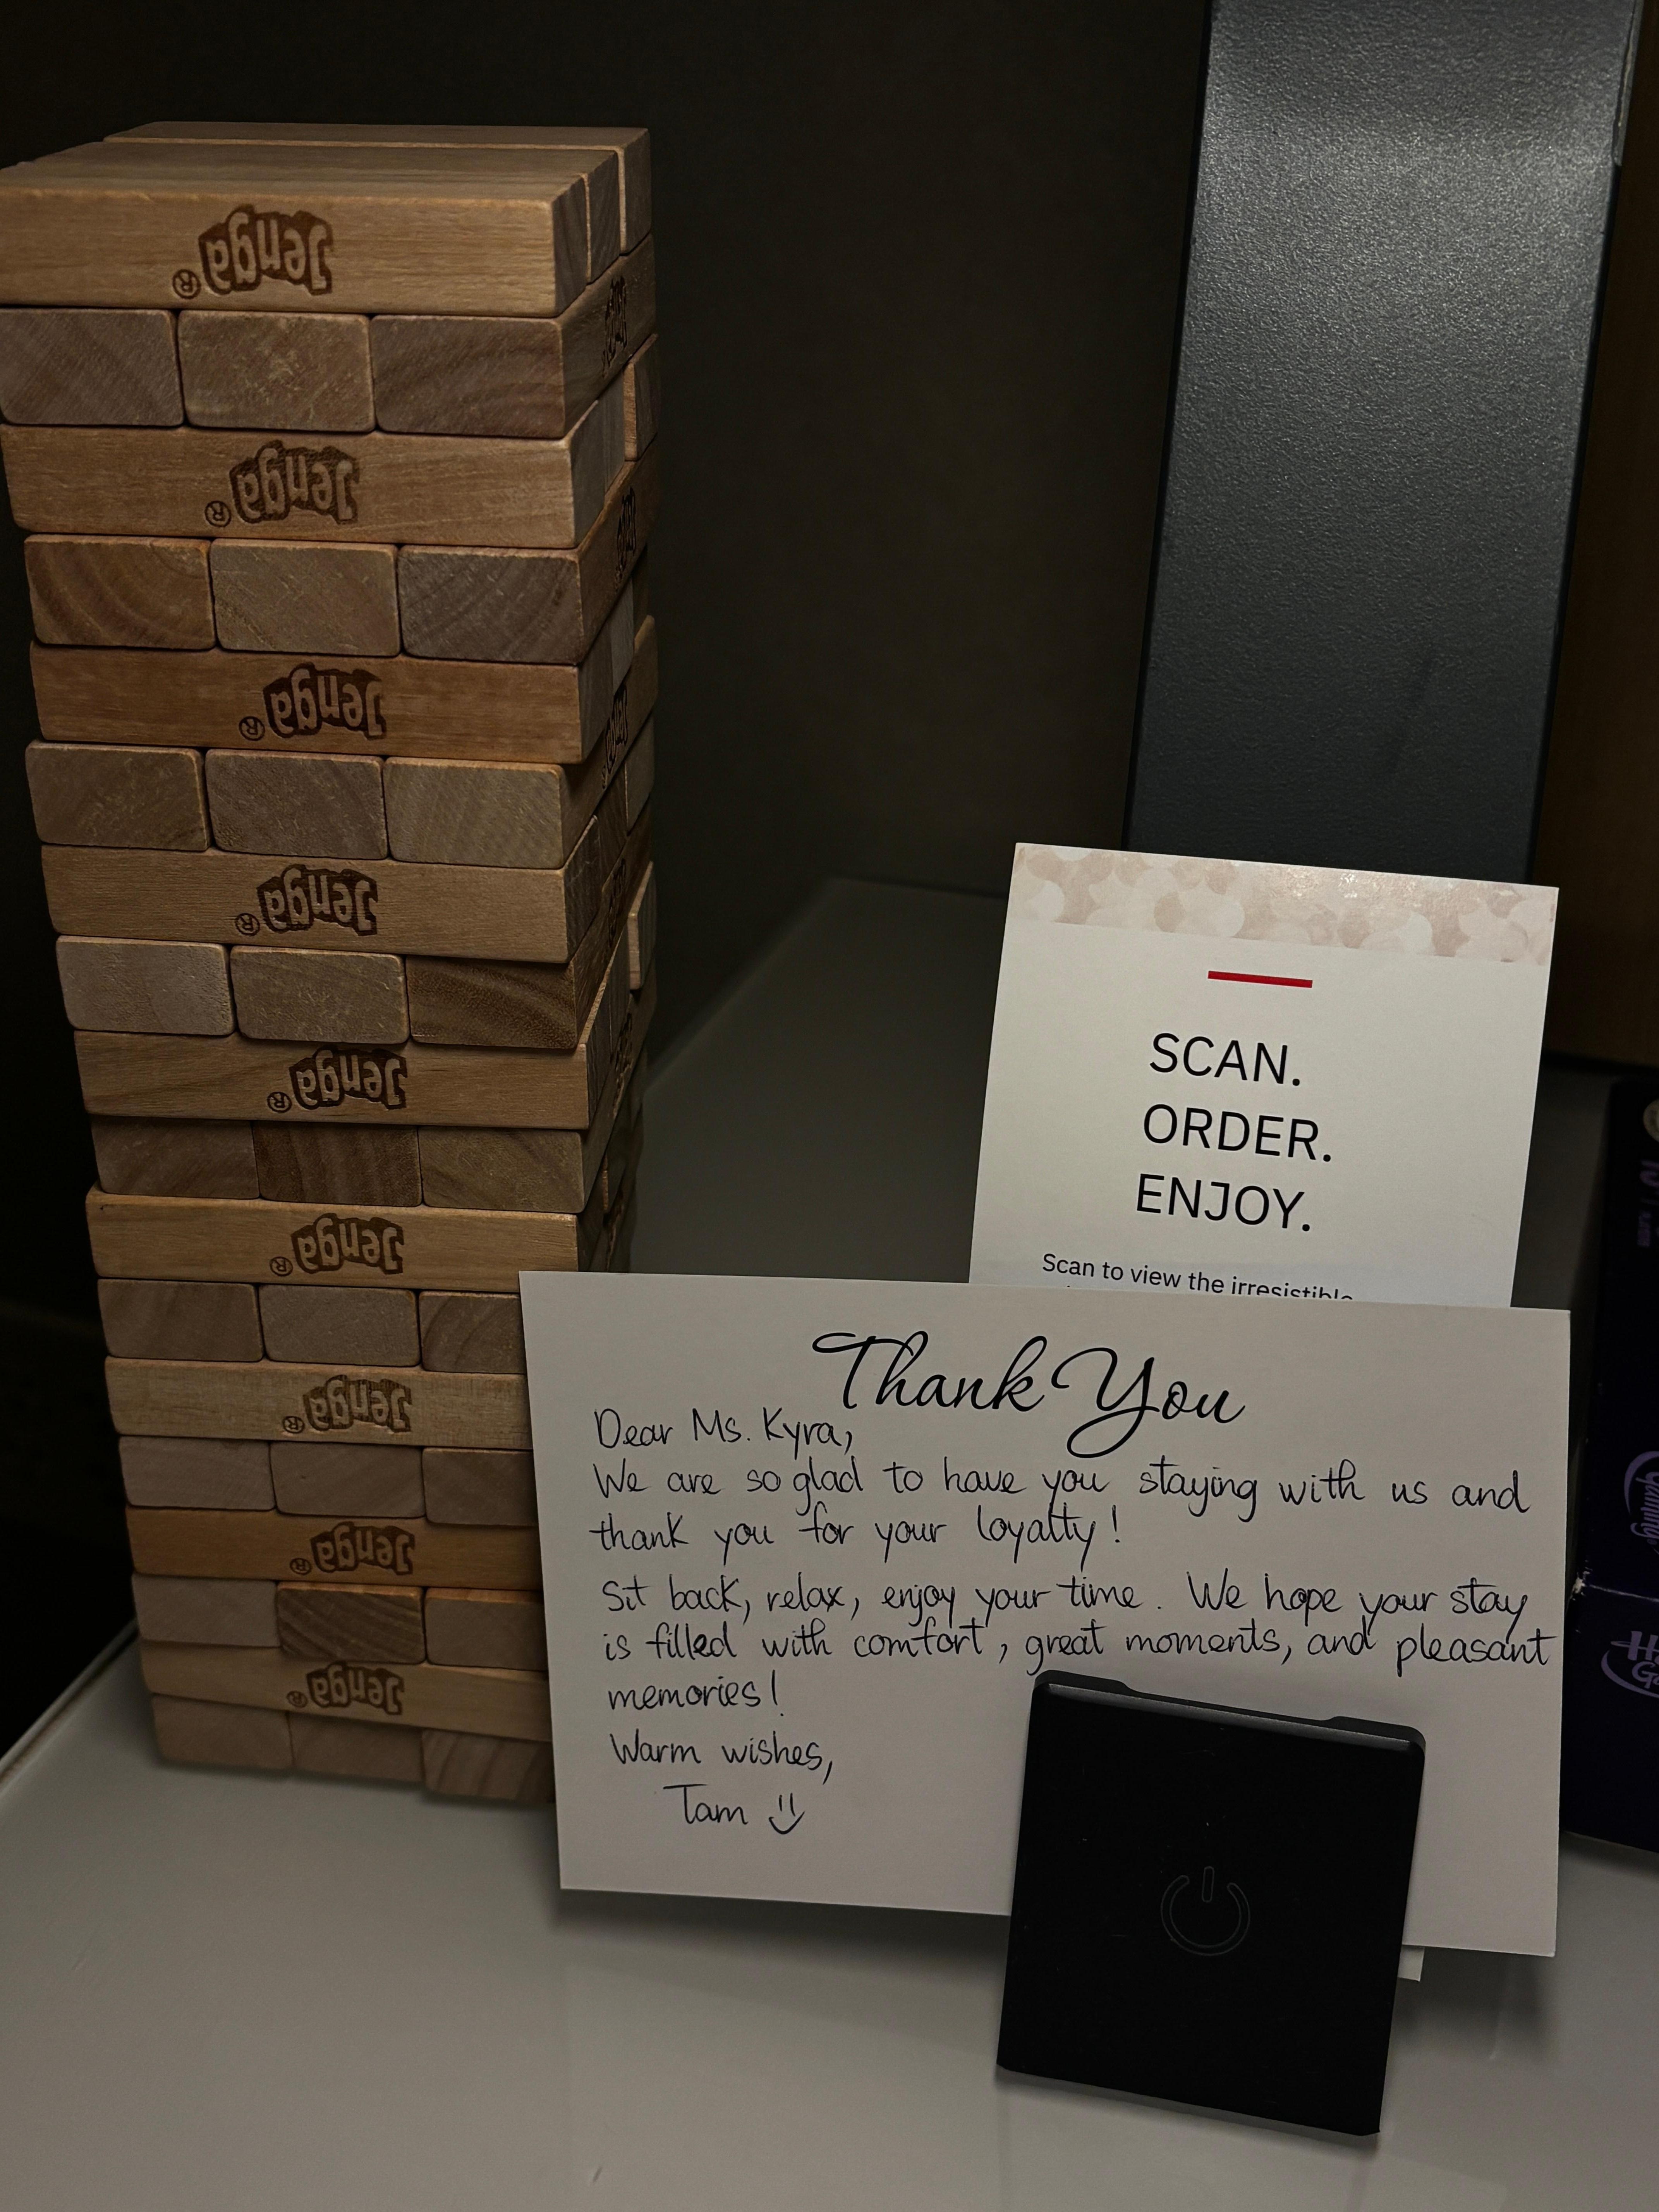 Jenga®
Jenga®
Jenga®
Jenga®
Jenga®
Jenga®
Jenga®
Jenga®
Jenga®
SCAN.
ORDER.
ENJOY.
Scan to view the irresistible
Thank You
Dear Ms. Kyra,
We are so glad to have you staying with us and
thank you for your loyalty!
Sit back, relax, enjoy your time. We hope your stay
is filled with comfort, great moments, and pleasant
memories!
Warm wishes,
Tam